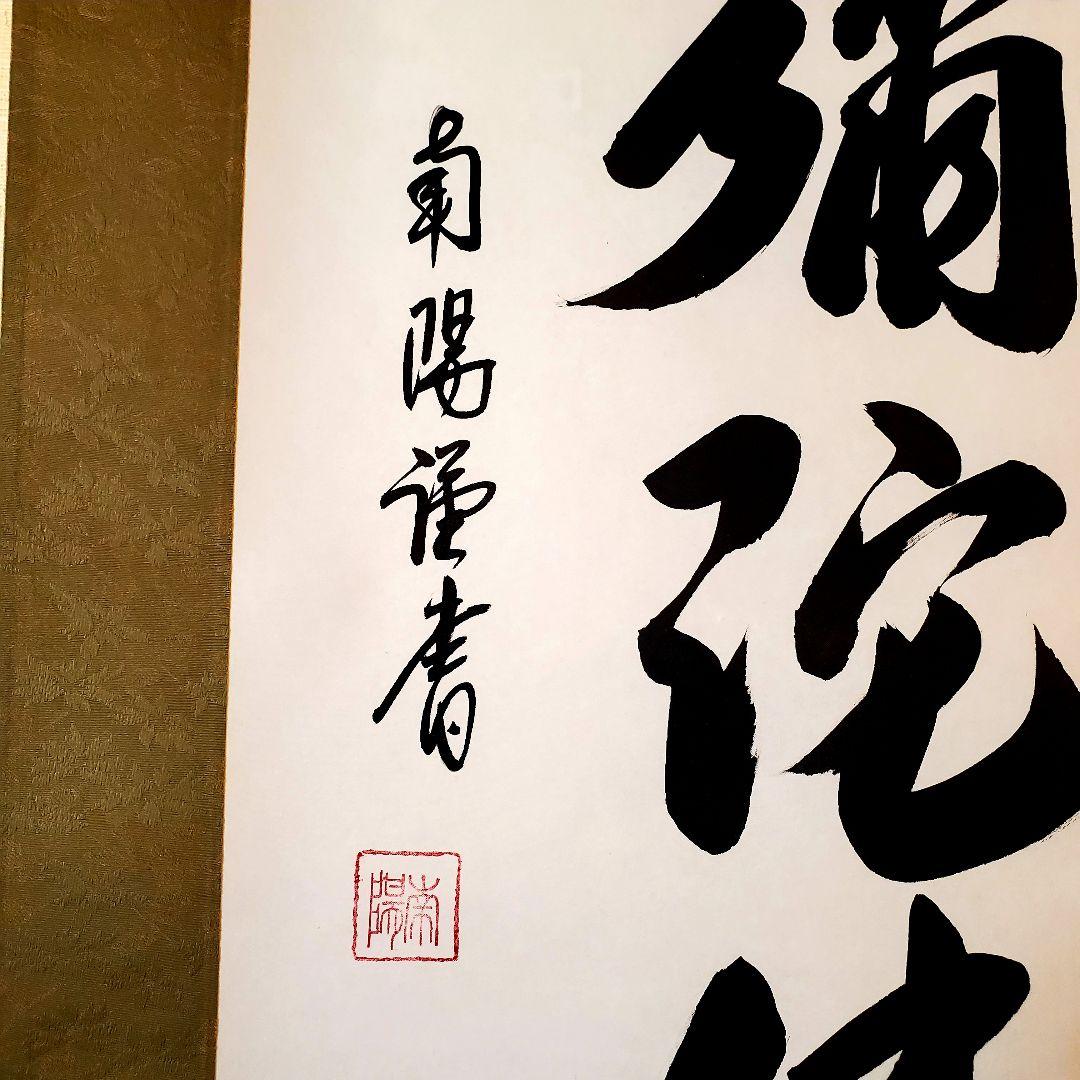 彌陀佛
南陽謹書
南陽